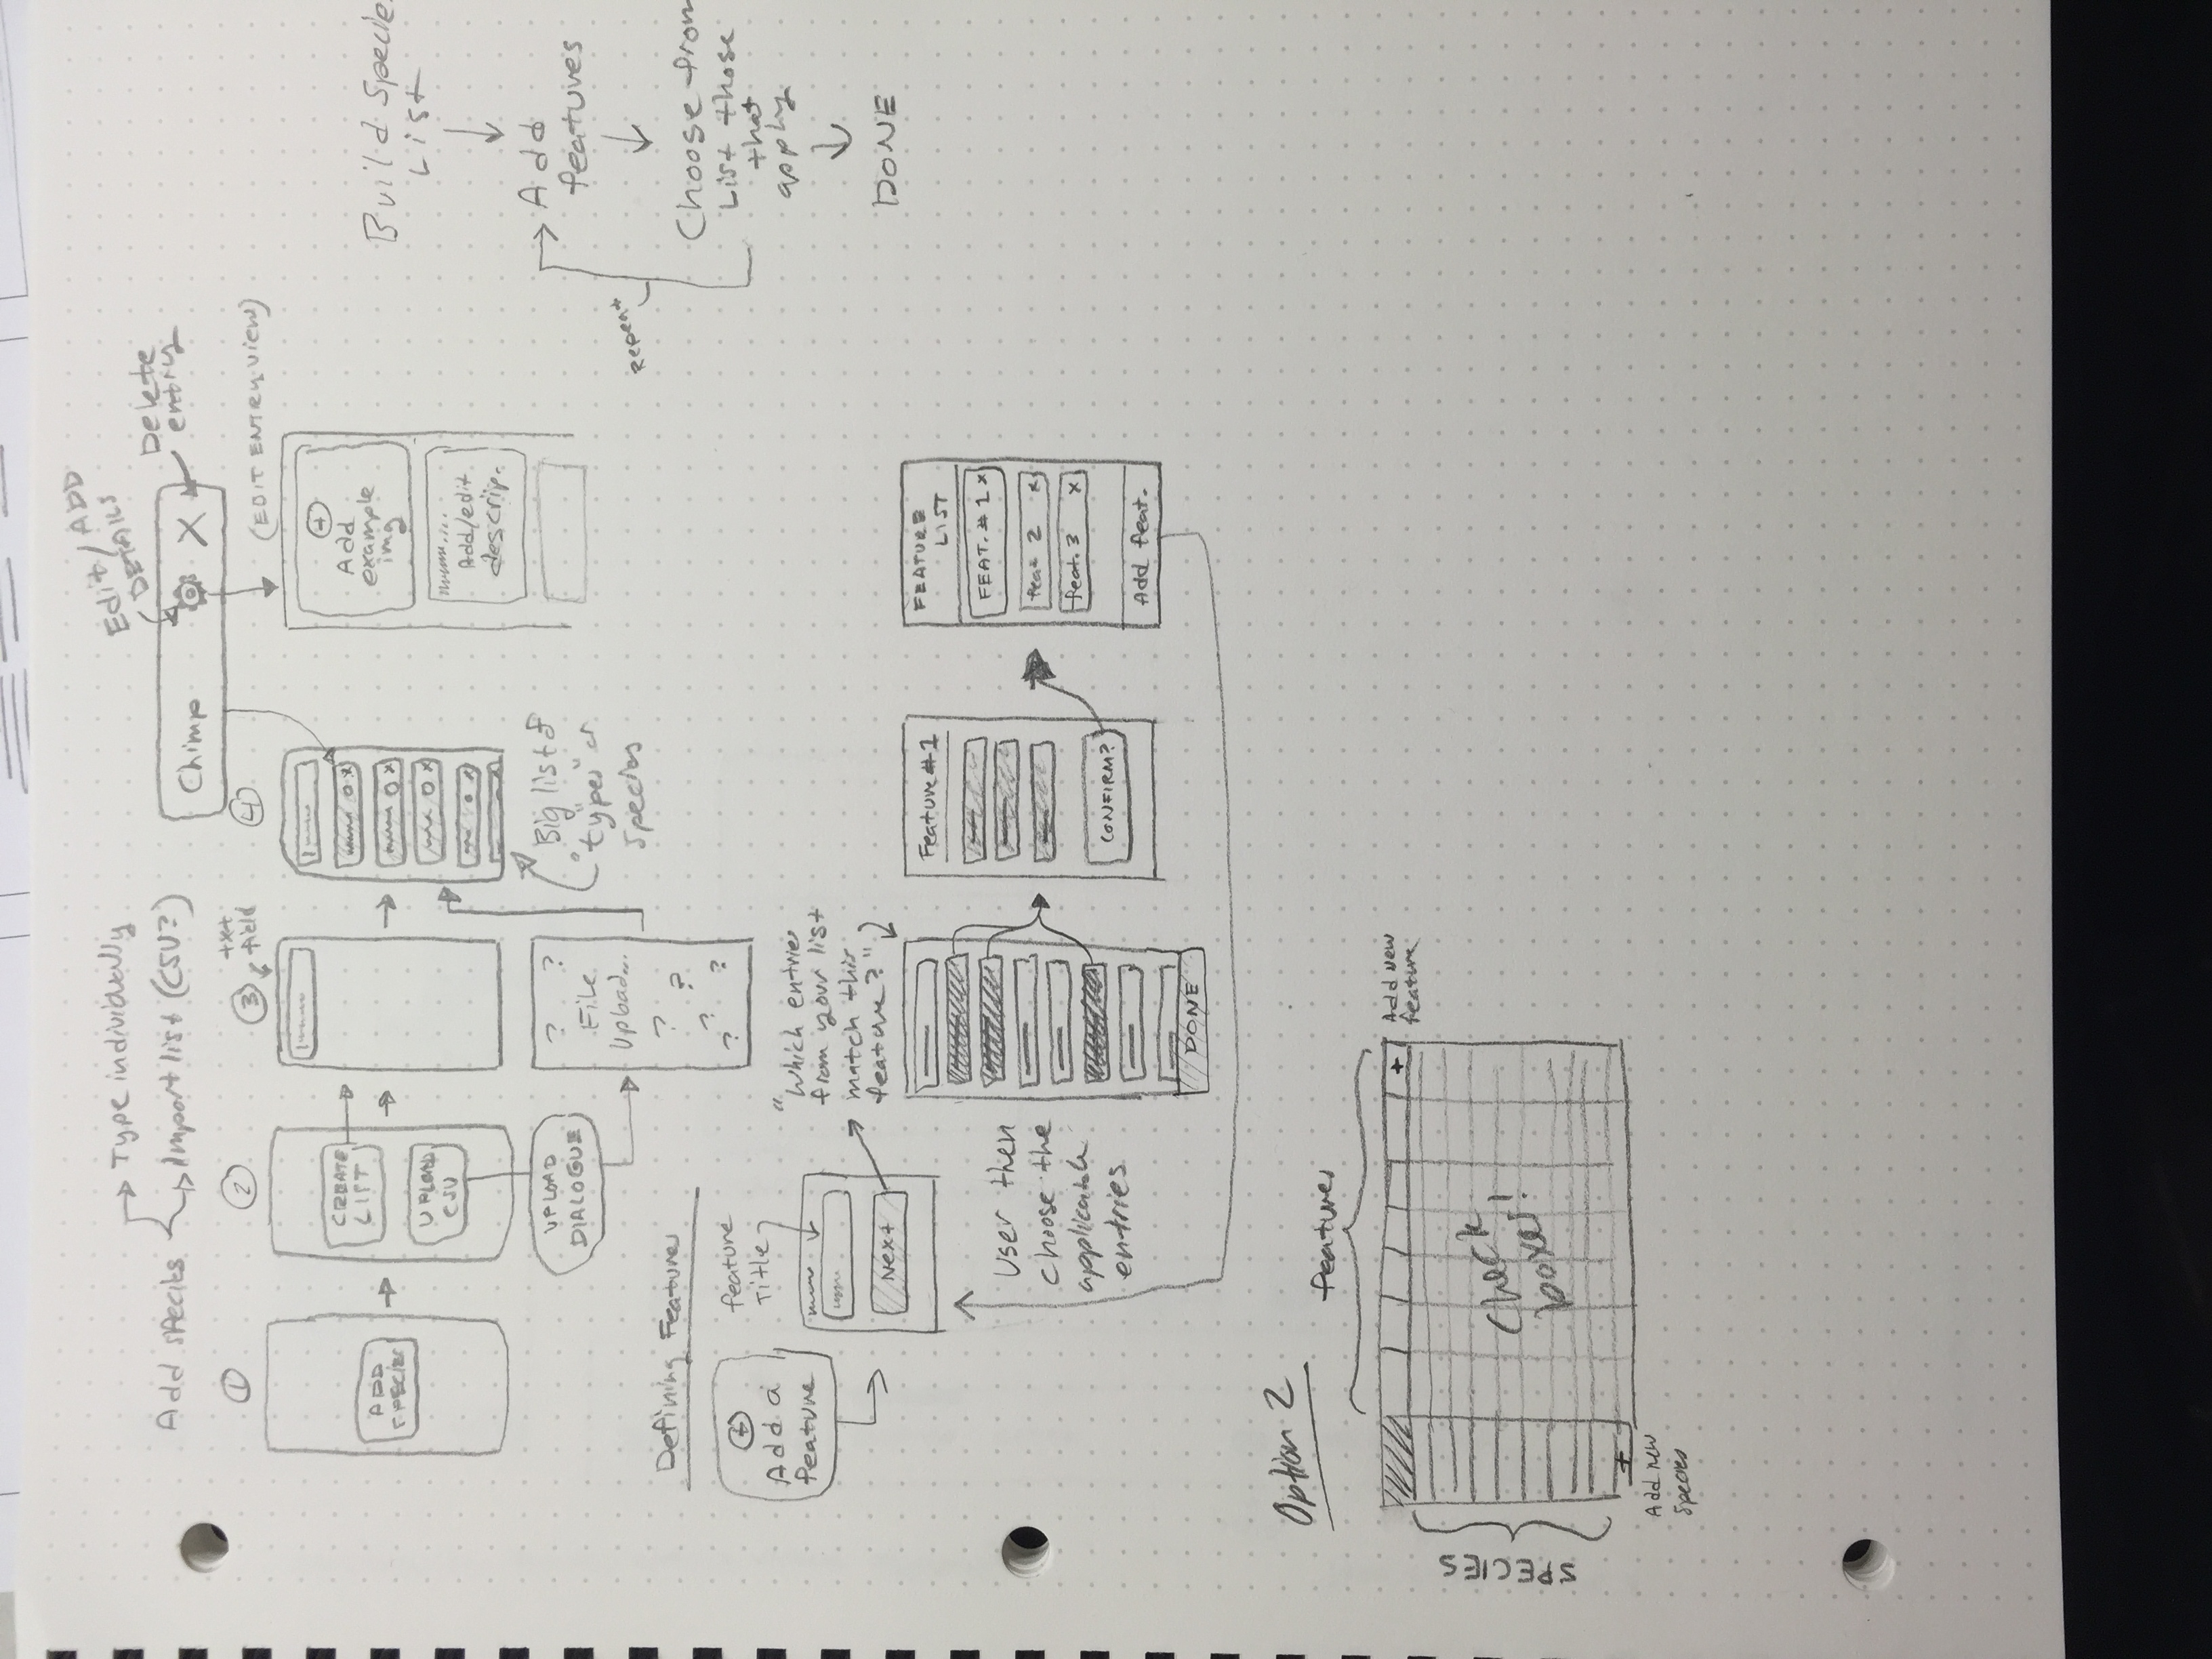 Type individually
Add species
Import list (CSV?)
Edit/ADD
DETAILS
Delete
entry
Chimp
X
①
②
③
txt
field
④
(EDIT ENTRY VIEW)
ADD
SPECIES
CREATE
LIST
UPLOAD
CSV
UPLOAD
DIALOGUE
? ?
File
Upload...
?
?
?
? ?
x
x
x
x
Big list of
"types" or
species
+
Add
example
img
Add/edit
descrip.
Build Species
List
Add
features
Repeat
Choose from
List those
that
apply
DONE
Defining Features
+
Add a
feature
feature
Title
Next
"Which entries
from your list
match this
feature?"
User then
choose the
applicable
entries
DONE
Feature #1
CONFIRM?
FEATURE
LIST
FEAT. #1 x
feat 2 x
feat. 3 x
Add feat.
Option 2
features
+
Add new
feature
SPECIES
Check
boxes!
+
Add new
species